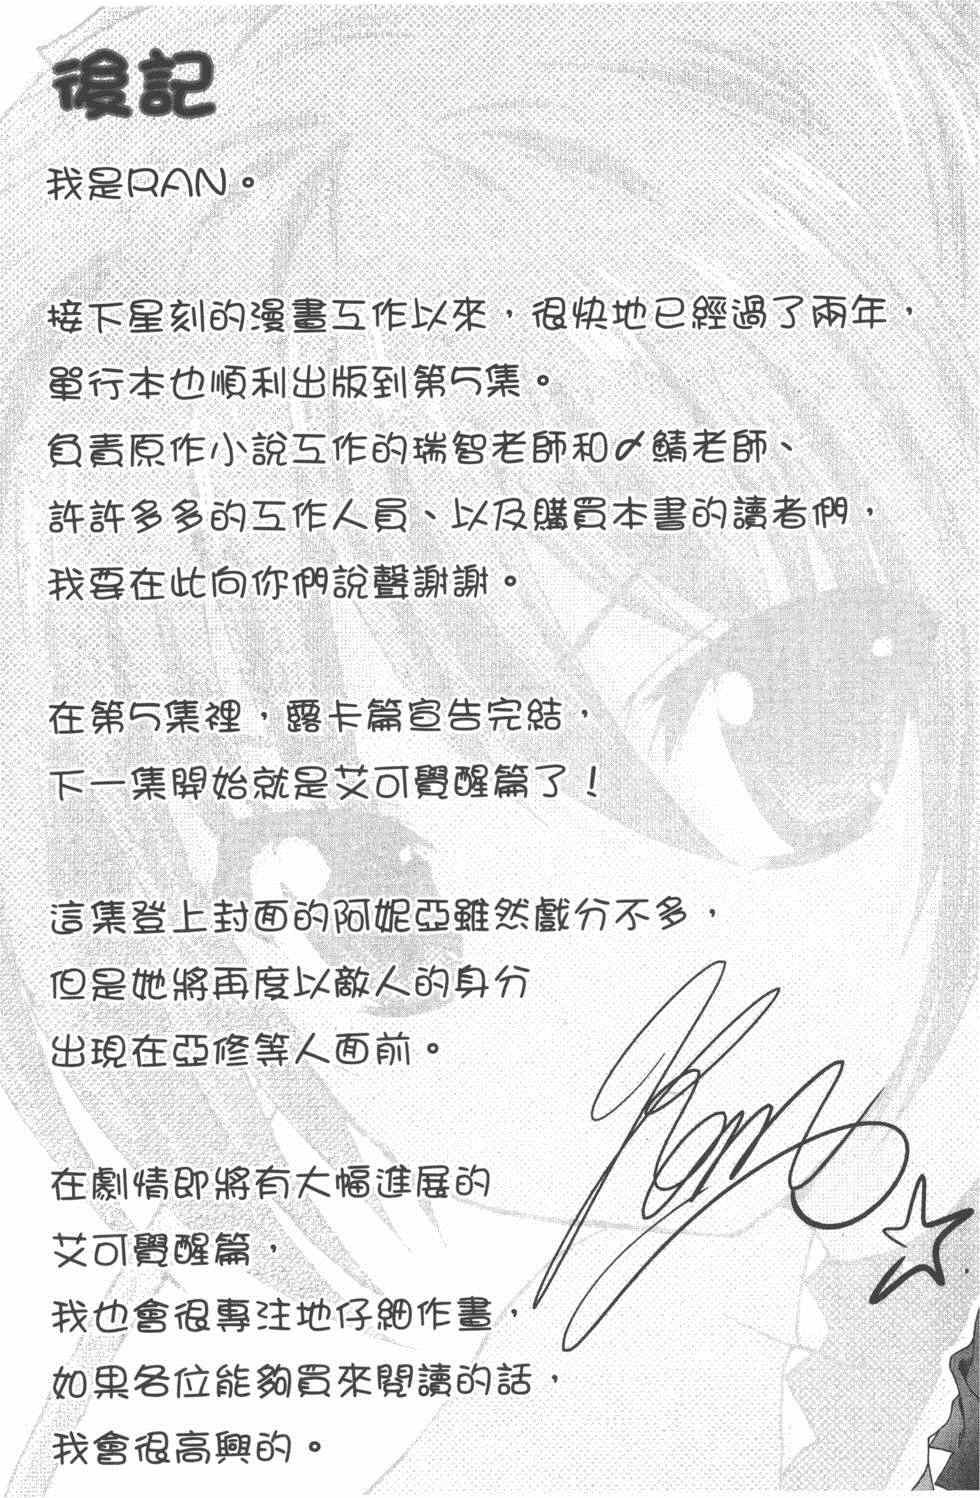 後記
我是RAN。
接下星刻的漫畫工作以來，很快地已經過了兩年，
單行本也順利出版到第5集。
負責原作小說工作的瑞智老師和〆鯖老師、
許許多多的工作人員、以及購買本書的讀者們，
我要在此向你們說聲謝謝。
在第5集裡，露卡篇宣告完結，
下一集開始就是艾可覺醒篇了！
這集登上封面的阿妮亞雖然戲分不多，
但是她將再度以敵人的身分
出現在亞修等人面前。
在劇情即將有大幅進展的
艾可覺醒篇，
我也會很專注地仔細作畫，
如果各位能夠買來閱讀的話，
我會很高興的。
Ran☆